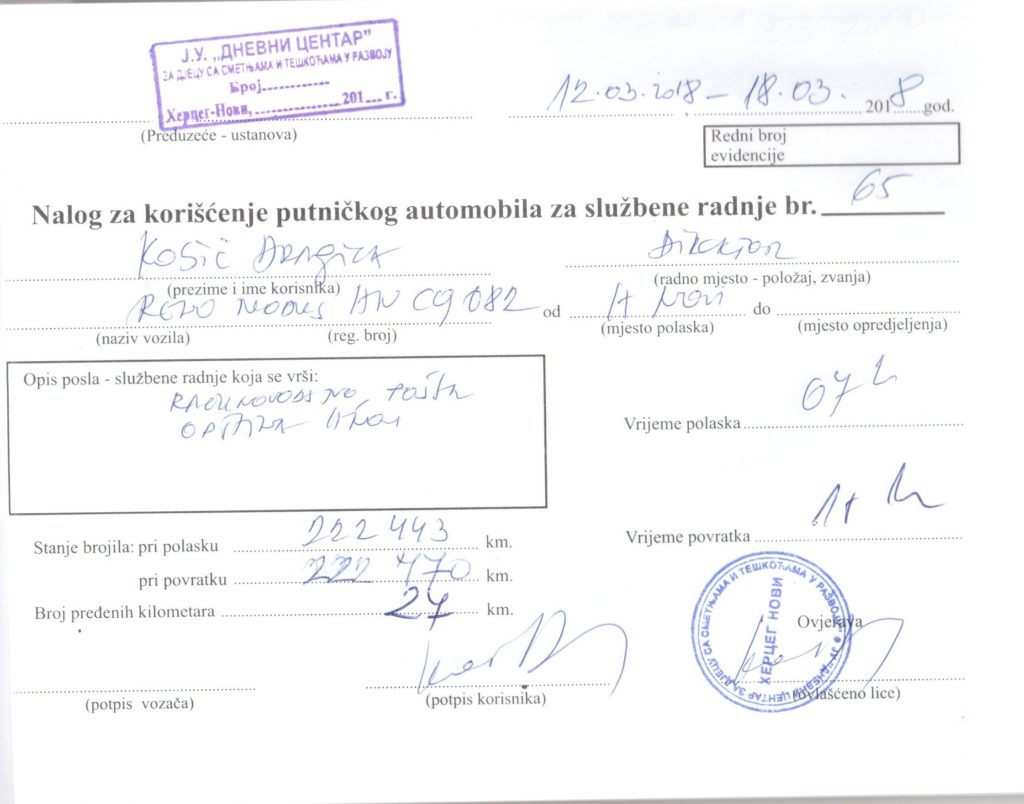 Ј.У. „ДНЕВНИ ЦЕНТАР”
ЗА ДЈЕЦУ СА СМЕТЊАМА И ТЕШКОЋАМА У РАЗВОЈУ
Број
Херцег-Нови, 201 г.
(Preduzeće - ustanova)
12.03.2018 - 18.03. 2018 god.
Redni broj
evidencije
Nalog za korišćenje putničkog automobila za službene radnje br. 65
Kosić Dragica
(prezime i ime korisnika)
Direktor
(radno mjesto - položaj, zvanja)
HN CG 082 od H Novi do
(naziv vozila) (reg. broj) (mjesto polaska) (mjesto opredjeljenja)
Opis posla - službene radnje koja se vrši:
pošta
opština H Novi
Vrijeme polaska 07 h
Vrijeme povratka h
Stanje brojila: pri polasku 222 443 km.
pri povratku 222 470 km.
Broj pređenih kilometara 27 km.
(potpis vozača)
(potpis korisnika)
Ovjerava
(ovlašćeno lice)
ЈУ "ДНЕВНИ ЦЕНТАР ЗА ДЈЕЦУ СА СМЕТЊАМА И ТЕШКОЋАМА У РАЗВОЈУ"
ХЕРЦЕГ НОВИ